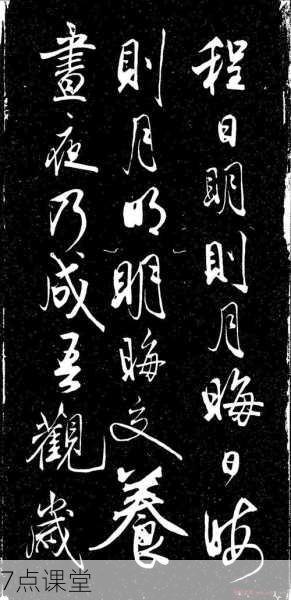 程日明則月晦日晦
則月明明晦交養
晝夜乃成吾觀歲
7点课堂